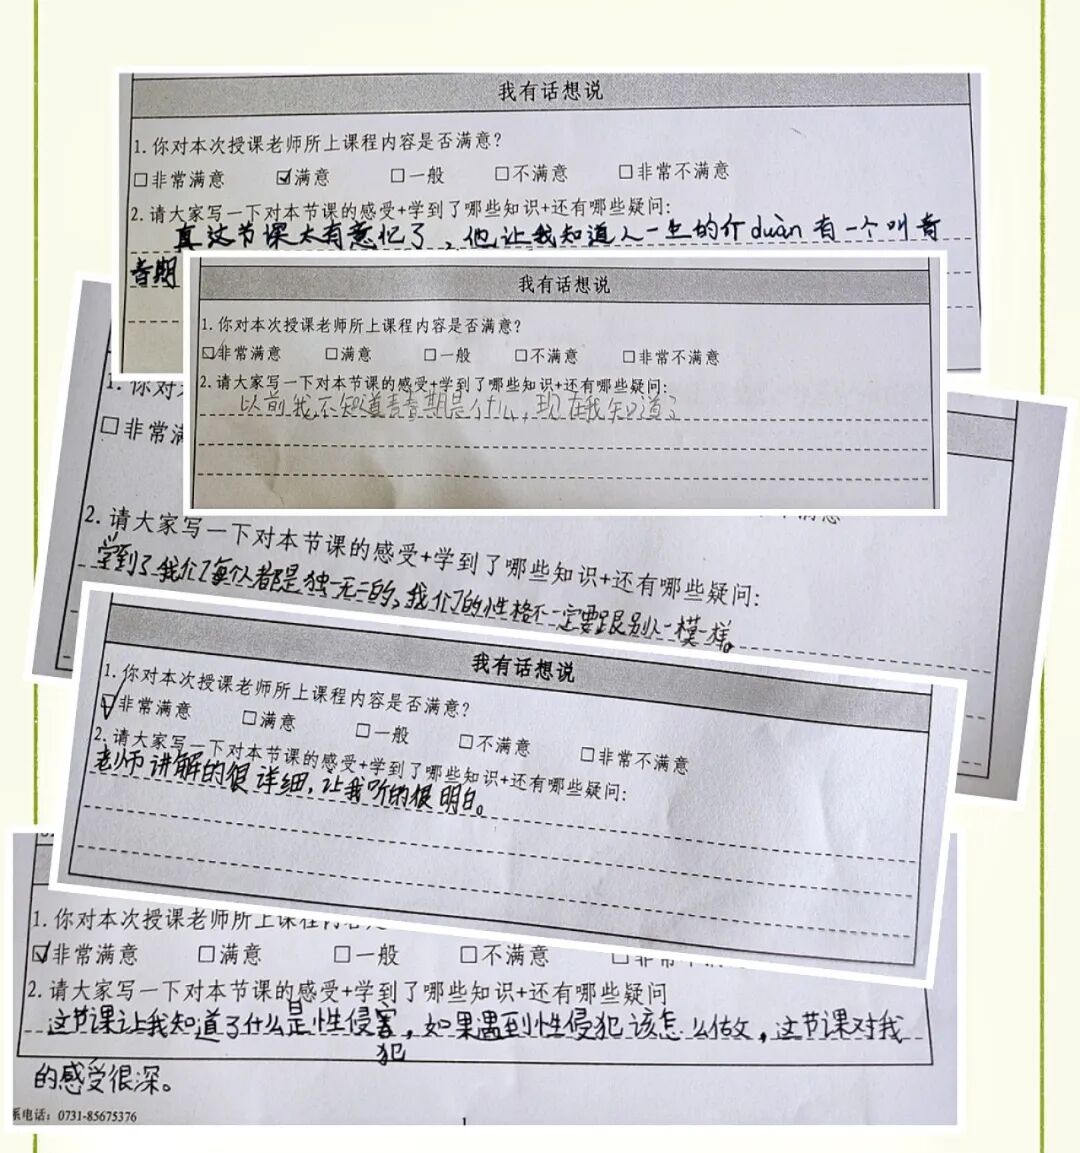 我有话想说
1.你对本次授课老师所上课程内容是否满意?
□非常满意 ☑满意 □一般 □不满意 □非常不满意
2.请大家写一下对本节课的感受+学到了哪些知识+还有哪些疑问:
真这节课太有意忆了,他让我知道人一生的介duàn有一个叫青
春期
我有话想说
1.你对本次授课老师所上课程内容是否满意?
☑非常满意 □满意 □一般 □不满意 □非常不满意
2.请大家写一下对本节课的感受+学到了哪些知识+还有哪些疑问:
以前我不知道青春期是什么,现在我知道了
1.你对
□非常满
不满意
2.请大家写一下对本节课的感受+学到了哪些知识+还有哪些疑问:
学到了我们每个人都是独一无二的,我们的性格不一定要跟别人一模一样。
我有话想说
1.你对本次授课老师所上课程内容是否满意?
☑非常满意 □满意 □一般 □不满意 □非常不满意
2.请大家写一下对本节课的感受+学到了哪些知识+还有哪些疑问:
老师讲解的很详细,让我听的很明白。
1.你对本次授课老师所上课程内容是
☑非常满意 □满意 □一般 □不满意 □非常不满意
2.请大家写一下对本节课的感受+学到了哪些知识+还有哪些疑问
这节课让我知道了什么是性侵害,如果遇到性侵犯该怎么做文,这节课对我
犯
的感受很深。
系电话:0731-85675376
1